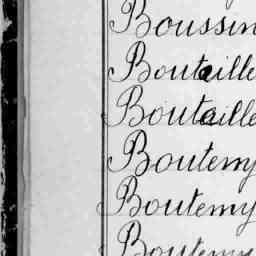 Boussin
Boutaille
Boutaille
Boutemy
Boutemy
Boutemy